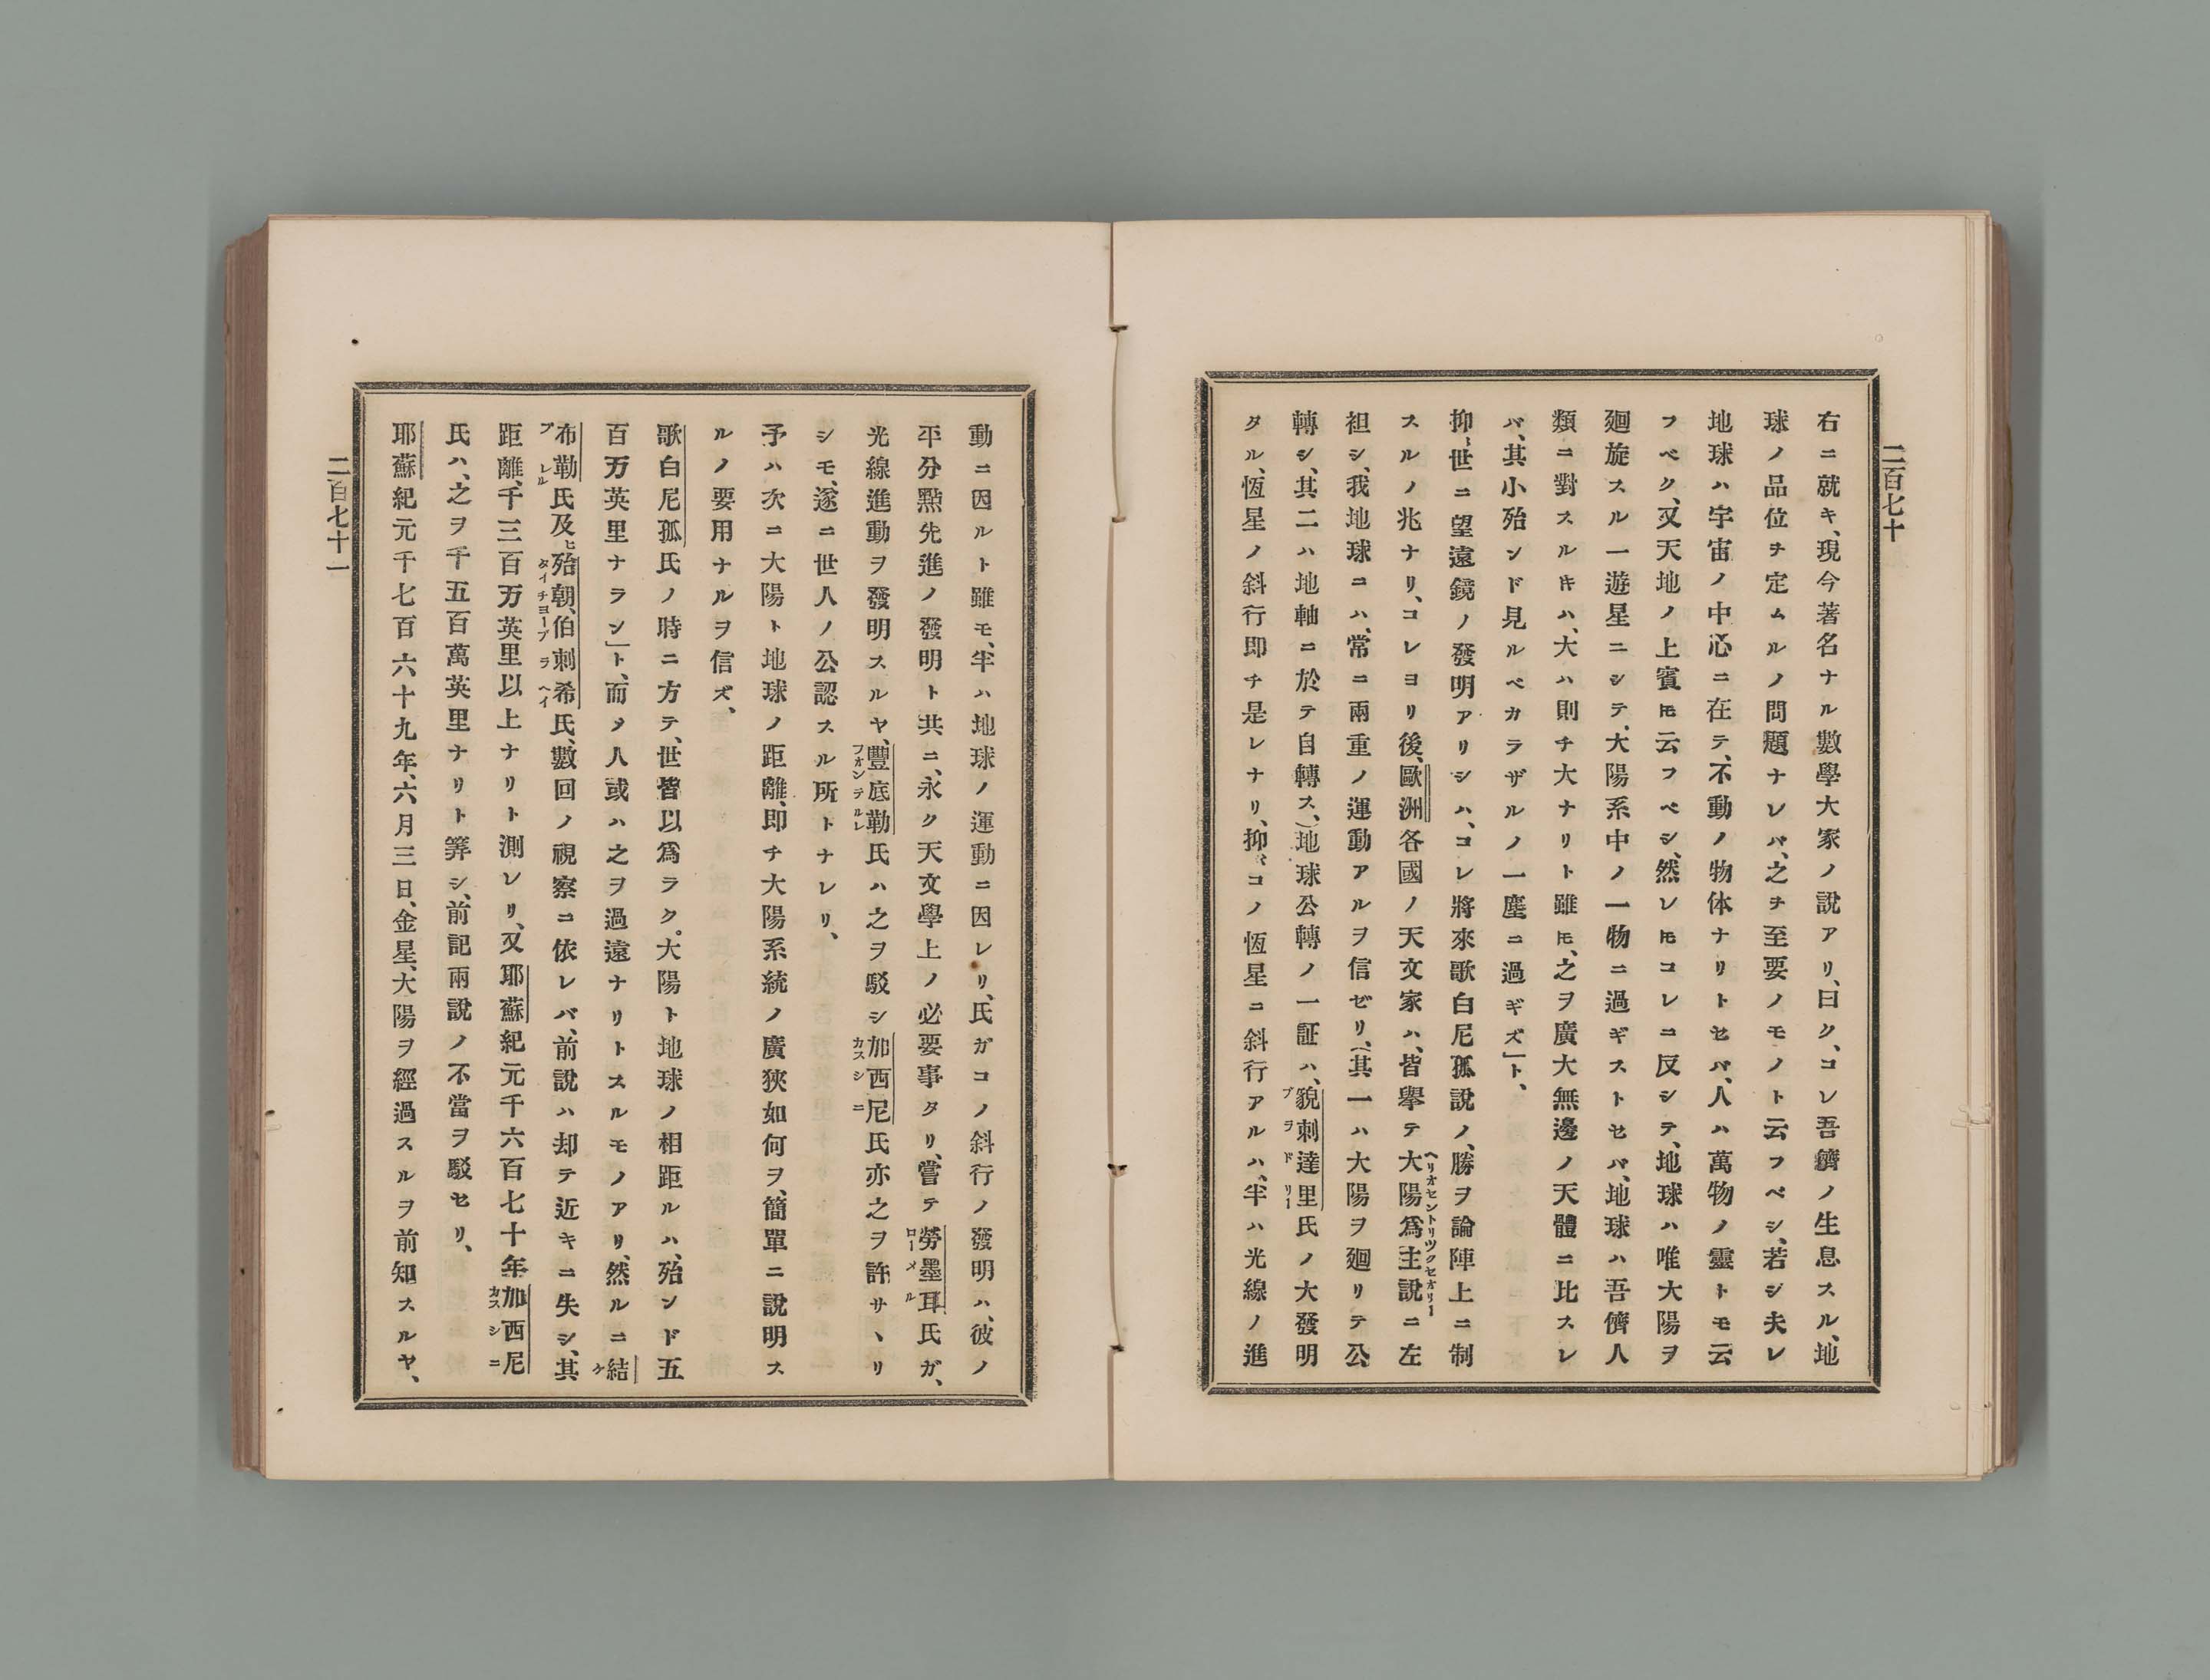 二百七十
右ニ就キ、現今著名ナル數學大家ノ說アリ、曰ク、コレ吾儕ノ生息スル、地
球ノ品位チ定ムルノ問題ナレバ、之チ至要ノモノト云フベシ、若シ夫レ
地球ハ宇宙ノ中心ニ在テ、不動ノ物体ナリトセバ、人ハ萬物ノ靈トモ云
フベク、又天地ノ上賓𪜈云フベシ、然レ𪜈コレニ反シテ、地球ハ唯大陽ヲ
廻旋スル一遊星ニシテ、大陽系中ノ一物ニ過ギストセバ、地球ハ吾儕人
類ニ對スルキハ、大ハ則チ大ナリト雖𪜈、之ヲ廣大無邊ノ天體ニ比スレ
バ、其小殆ンド見ルベカラザルノ一塵ニ過ギズ」ト、
抑、世ニ望遠鏡ノ發明アリシハ、コレ將來歌白尼孤說ノ、勝ヲ論陣上ニ制
スルノ兆ナリ、コレヨリ後、歐洲各國ノ天文家ハ、皆擧テ大陽爲主說ニ左
ヘリオセントリツクセオリー
袒シ、我地球ニハ、常ニ兩重ノ運動アルヲ信ゼリ、(其一ハ大陽ヲ廻リテ公
轉シ、其二ハ地軸ニ於テ自轉ス、)地球公轉ノ一証ハ、貌刺達里氏ノ大發明
ブラドリー
タル、恆星ノ斜行即チ是レナリ、抑々コノ恆星ニ斜行アルハ、半ハ光線ノ進
動ニ因ルト雖モ、半ハ地球ノ運動ニ因レリ、氏ガコノ斜行ノ發明ハ、彼ノ
平分點先進ノ發明ト共ニ、永ク天文學上ノ必要事タリ、嘗テ勞墨耳氏ガ、
ローメル
光線進動ヲ發明スルヤ、豐底勒氏ハ之ヲ駁シ加西尼氏亦之ヲ許サヽリ
フォンテルレ
カスシニ
シモ、遂ニ世人ノ公認スル所トナレリ、
予ハ次ニ大陽ト地球ノ距離、即チ大陽系統ノ廣狹如何ヲ、簡單ニ說明ス
ルノ要用ナルヲ信ズ、
歌白尼孤氏ノ時ニ方テ、世皆以爲ラク。大陽ト地球ノ相距ルハ、殆ンド五
百万英里ナラン」ト、而ヌ人或ハ之ヲ過遠ナリトスルモノアリ、然ルニ結
ケ
布勒氏及ヒ殆朝、伯刺希氏、數回ノ視察ニ依レバ、前說ハ却テ近キニ失シ、其
プレル
タイチョーブラヘイ
距離、千三百万英里以上ナリト測レリ、又耶蘇紀元千六百七十年加西尼
カスシニ
氏ハ、之ヲ千五百萬英里ナリト筭シ、前記兩說ノ不當ヲ駁セリ、
耶蘇紀元千七百六十九年、六月三日、金星、大陽ヲ經過スルヲ前知スルヤ、
二百七十一